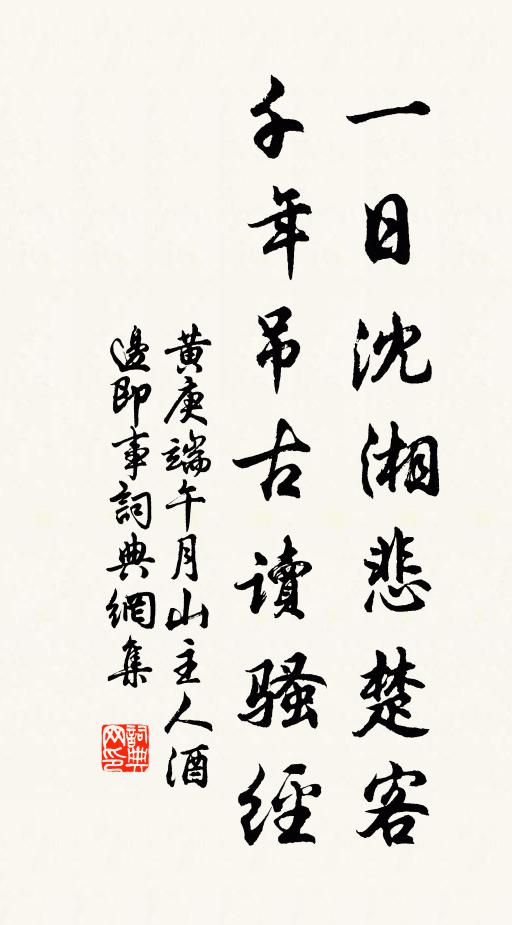 一日沈湘悲楚客
千年吊古讀騷經
黃庚端午月山主人酒
邊即事詞典網集
詞典网印